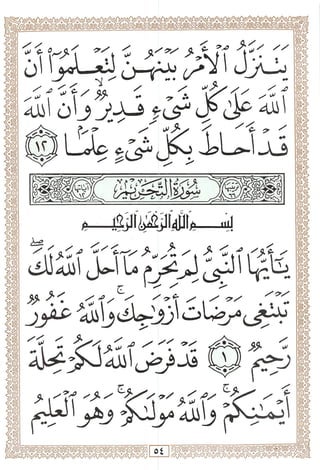 يَتَنَزَّلُ ٱلْأَمْرُ بَيْنَهُنَّ لِتَعْلَمُوٓا۟ أَنَّ
ٱللَّهَ عَلَىٰ كُلِّ شَىْءٍ قَدِيرٌ وَأَنَّ ٱللَّهَ
قَدْ أَحَاطَ بِكُلِّ شَىْءٍ عِلْمًۢا ١٢
سُورَةُ التَّحْرِيمِ
بِسْمِ ٱللَّهِ ٱلرَّحْمَٰنِ ٱلرَّحِيمِ
يَٰٓأَيُّهَا ٱلنَّبِىُّ لِمَ تُحَرِّمُ مَآ أَحَلَّ ٱللَّهُ لَكَ ۖ
تَبْتَغِى مَرْضَاتَ أَزْوَٰجِكَ ۚ وَٱللَّهُ غَفُورٌ
رَّحِيمٌ ١ قَدْ فَرَضَ ٱللَّهُ لَكُمْ تَحِلَّةَ
أَيْمَٰنِكُمْ ۚ وَٱللَّهُ مَوْلَىٰكُمْ ۖ وَهُوَ ٱلْعَلِيمُ
٥٤